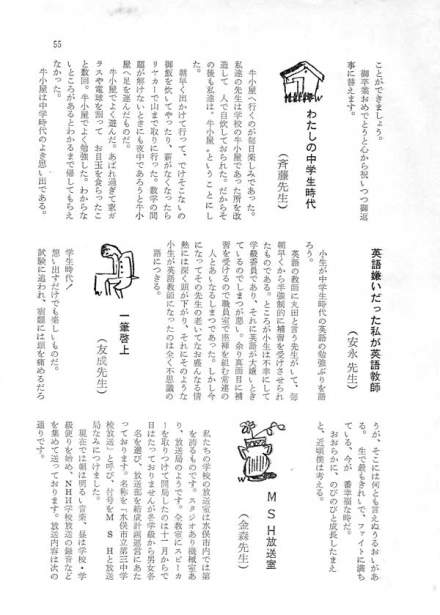 ことができましょう。
御卒業おめでとうと心から祝いつつ御返
事に替えます。
わたしの中学生時代
(斉藤先生)
牛小屋へ行くのが毎日楽しみであった。
私達の先生は学校の牛小屋であった所を改
造して一人で自炊しておられた。だからそ
の後も私達は「牛小屋」ということにし
た。
朝早く出かけて行って、でけそこないの
御飯を炊いてやったり、薪がなくなったら
リヤカーで山まで取りに行った。数学の問
題が解けないときにも夜中であろうと牛小
屋へ足を運んだものだ。
牛小屋でよく遊んだ。あばれ過ぎて窓ガ
ラスや電球を割って、お目玉を食らったこ
と数回。牛小屋でよく勉強した。わからな
いところがあるとわかるまで帰してもらえ
なかった。
牛小屋は中学時代のよき思い出である。
英語嫌いだった私が英語教師
(安永先生)
小生が中学生時代の英語の勉強ぶりを語
ろう。
英語の教師に友田と言う先生がいて、毎
朝早くから半強制的に補習を受けさせられ
たものである。ところが小生は不幸にして
学級委員であり、それに英語が大嫌いとき
ているのでしまつが悪い。余り真面目に補
習を受けるので職員室で座禅を組む常連の
一人とあいなるしまつであった。しかし今
になってその先生の老いてなお盛んなる情
熱には深く頭が下がり、それにそのような
小生が英語教師になったのは全く不思議の
話につきる。
一筆啓上
(友成先生)
学生時代!
思い出すだけでも楽しいものだ。
試験に追われ、宿題には頭を痛めるだろ
うが、そこには何とも言えぬうるおいがあ
る。生で最もきれいで、ファイトに満ち
ている、今が一番幸福な時だ。
おおらかに、のびのびと成長したまえ
と、近頃僕は考える。
MSH放送室
(金森先生)
私たちの学校の放送室は水俣市内では第一
を誇るものです。スタジオあり機械室あ
り、放送局のようです。全教室にスピーカ
ーを取りつけて開局したのは十一月からで
日はたっておりませんが各学級から男女各
一名を選び、放送部を結成計画運営にあた
っております。名称を「水俣市立第三中学
校放送」と呼び、符号をMSHと放送
局なみにつけました。
現在では朝は明るい音楽、昼は学校・学
級便りを始め、NHH学校放送の録音など
を集めて送っております。放送内容は次の
通りです。
55